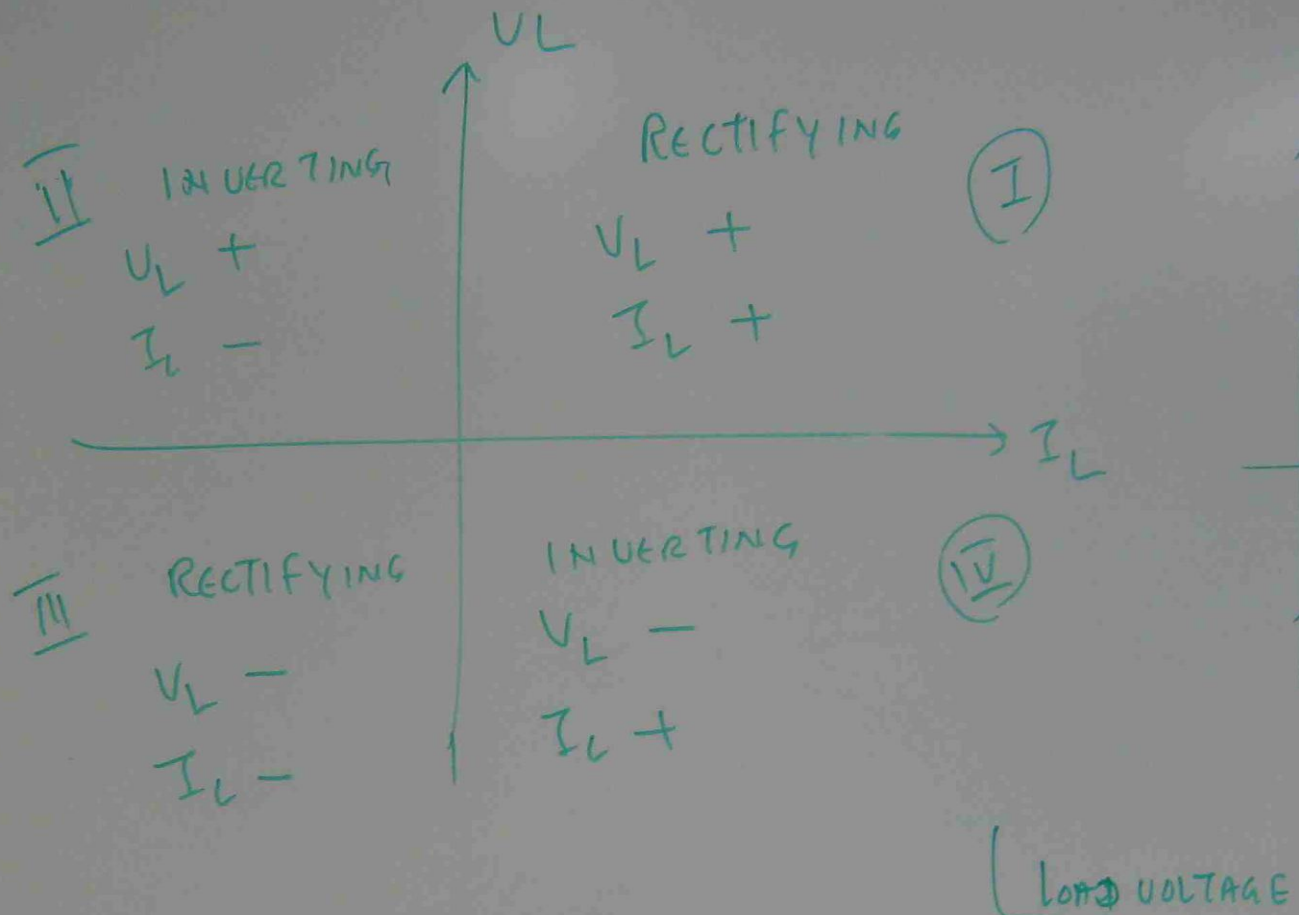 VL
II INVERTING
VL +
IL -
RECTIFYING I
VL +
IL +
IL
III RECTIFYING
VL -
IL -
INVERTING IV
VL -
IL +
( LOAD VOLTAGE